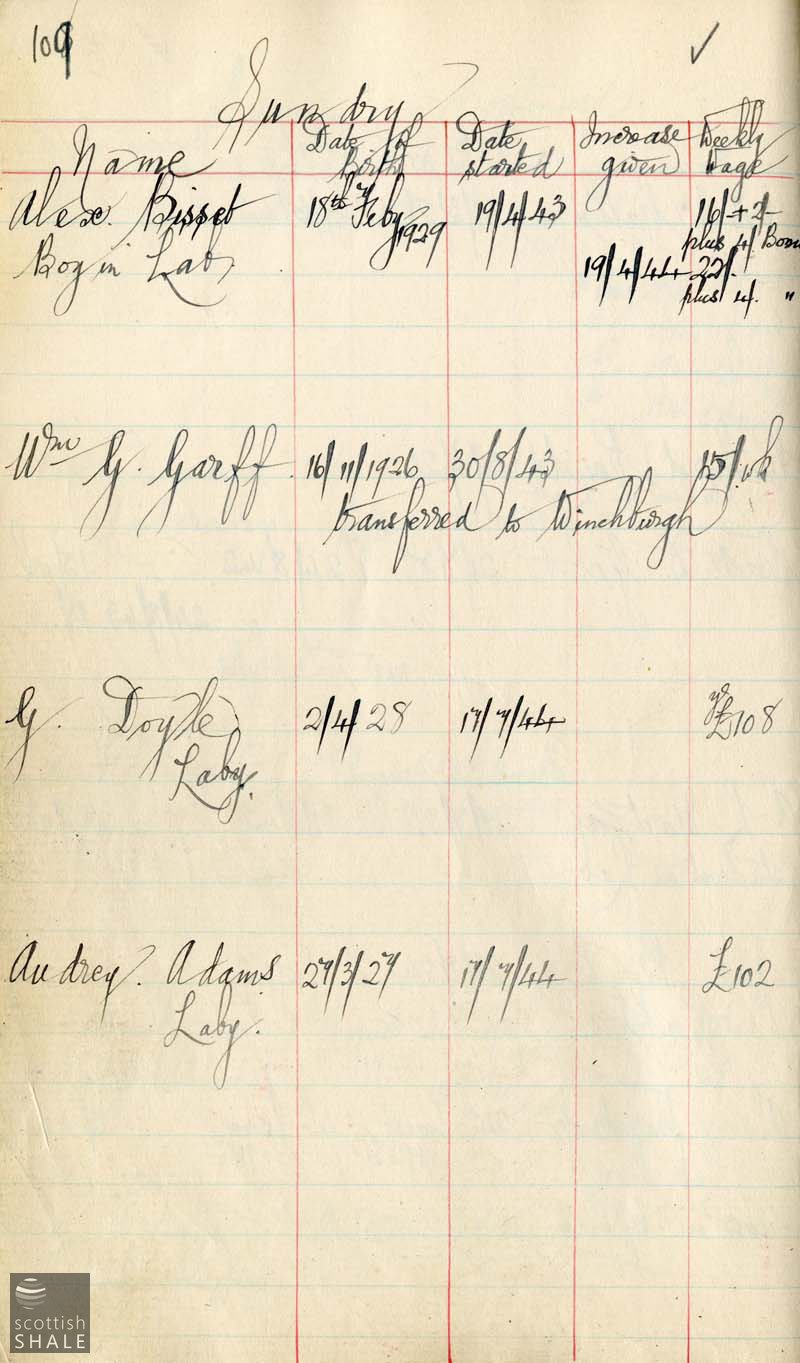 109
Sundry
Name Date of Birth Date started Increase given Weekly Wage
Alex. Bisset 18th Feby 1929 19/4/43 16/- + 2/-
plus 4/ Bonus
Boy in Lab. 19/4/44 22/-
plus 4/. "
Wm G. Garff 16/11/1926 30/8/43 15/. wk
transferred to Winchburgh
G. Doyle 2/4/28 17/7/44 £108
Laby.
Audrey. Adams 27/3/27 17/7/44 £102
Laby.
scottish
SHALE